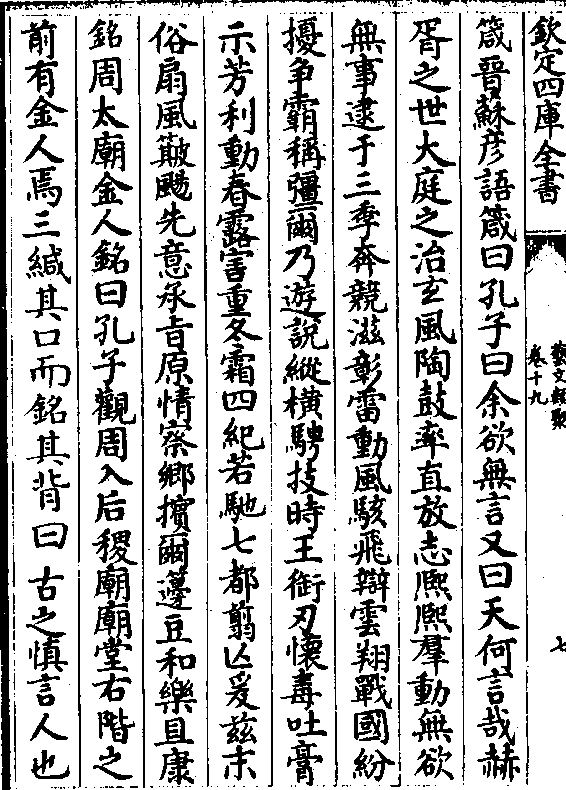 欽定四庫全書
藝文類聚
卷十九
七
箴晉蘇彥語箴曰孔子曰余欲無言又曰天何言哉赫
胥之世大庭之治玄風陶鼓率直放志熈熈羣動無欲
無事逮于三季奔競滋彰雷動風駭飛辯雲翔戰國紛
擾争霸稱彊爾乃遊說縱横騁技時王衘刃懷毒吐膏
示芳利動春露害重冬霜四紀若馳七都翦亾爰兹末
俗扇風皷颺先意承㫖原情察鄉擯爾籩豆和樂且康
銘周太廟金人銘曰孔子觀周入后稷廟廟堂右階之
前有金人焉三緘其口而銘其背曰古之慎言人也